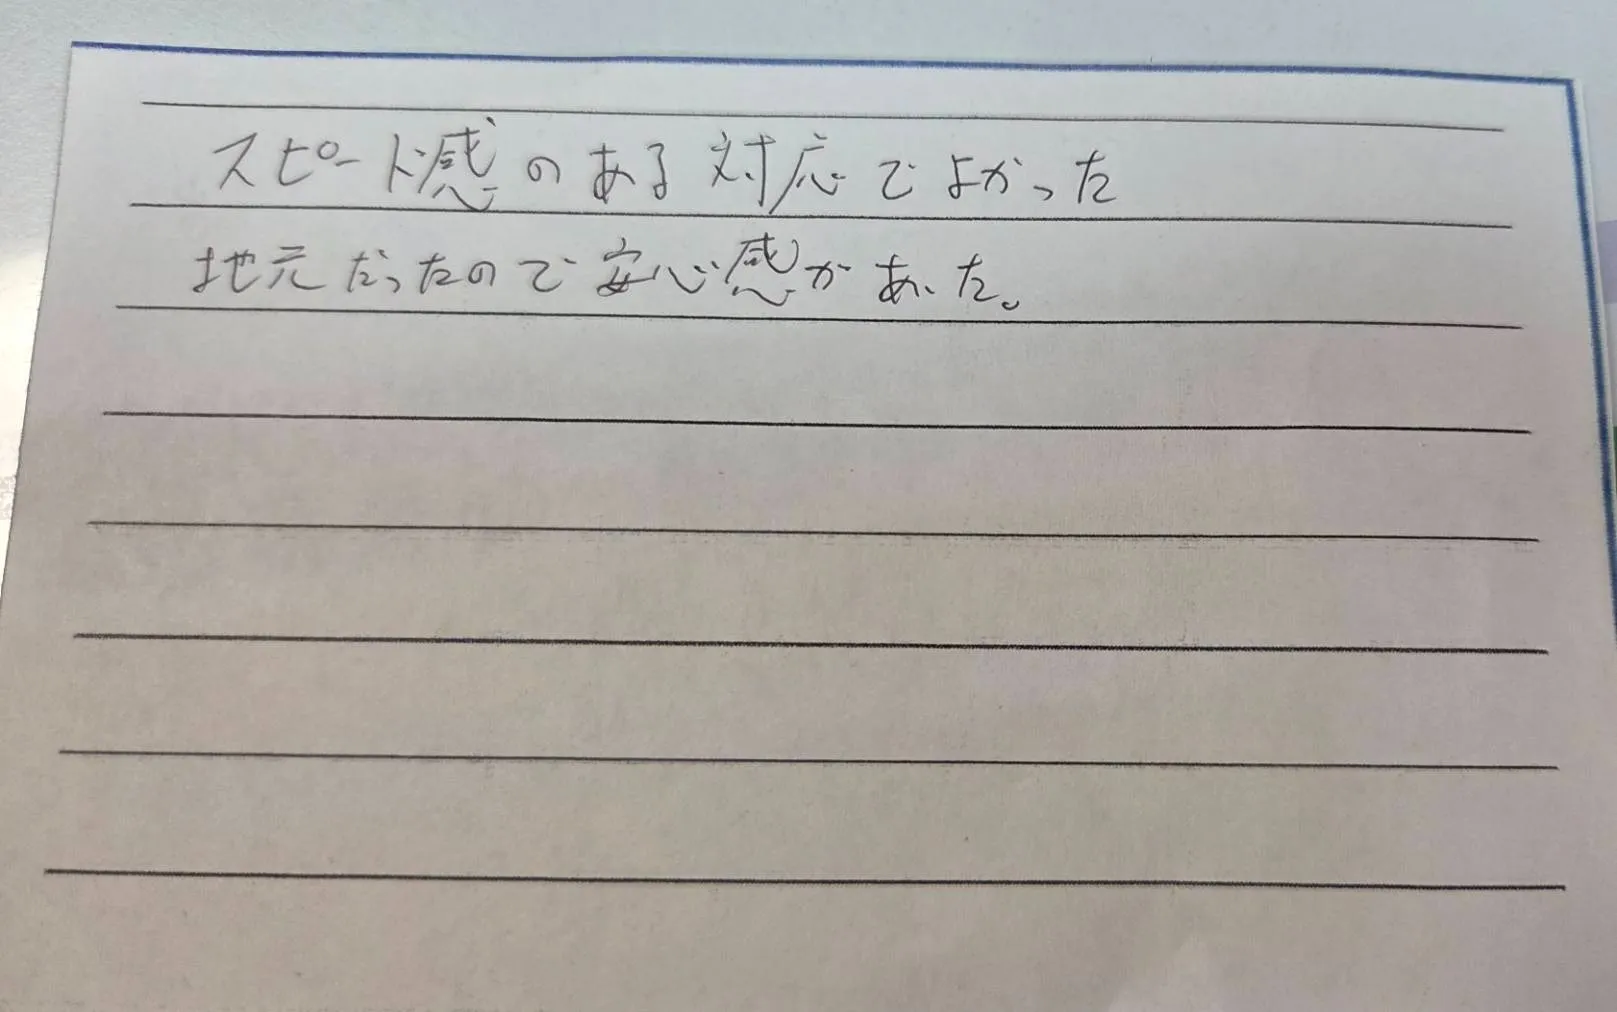 スピード感のある対応でよかった
地元だったので安心感があった。